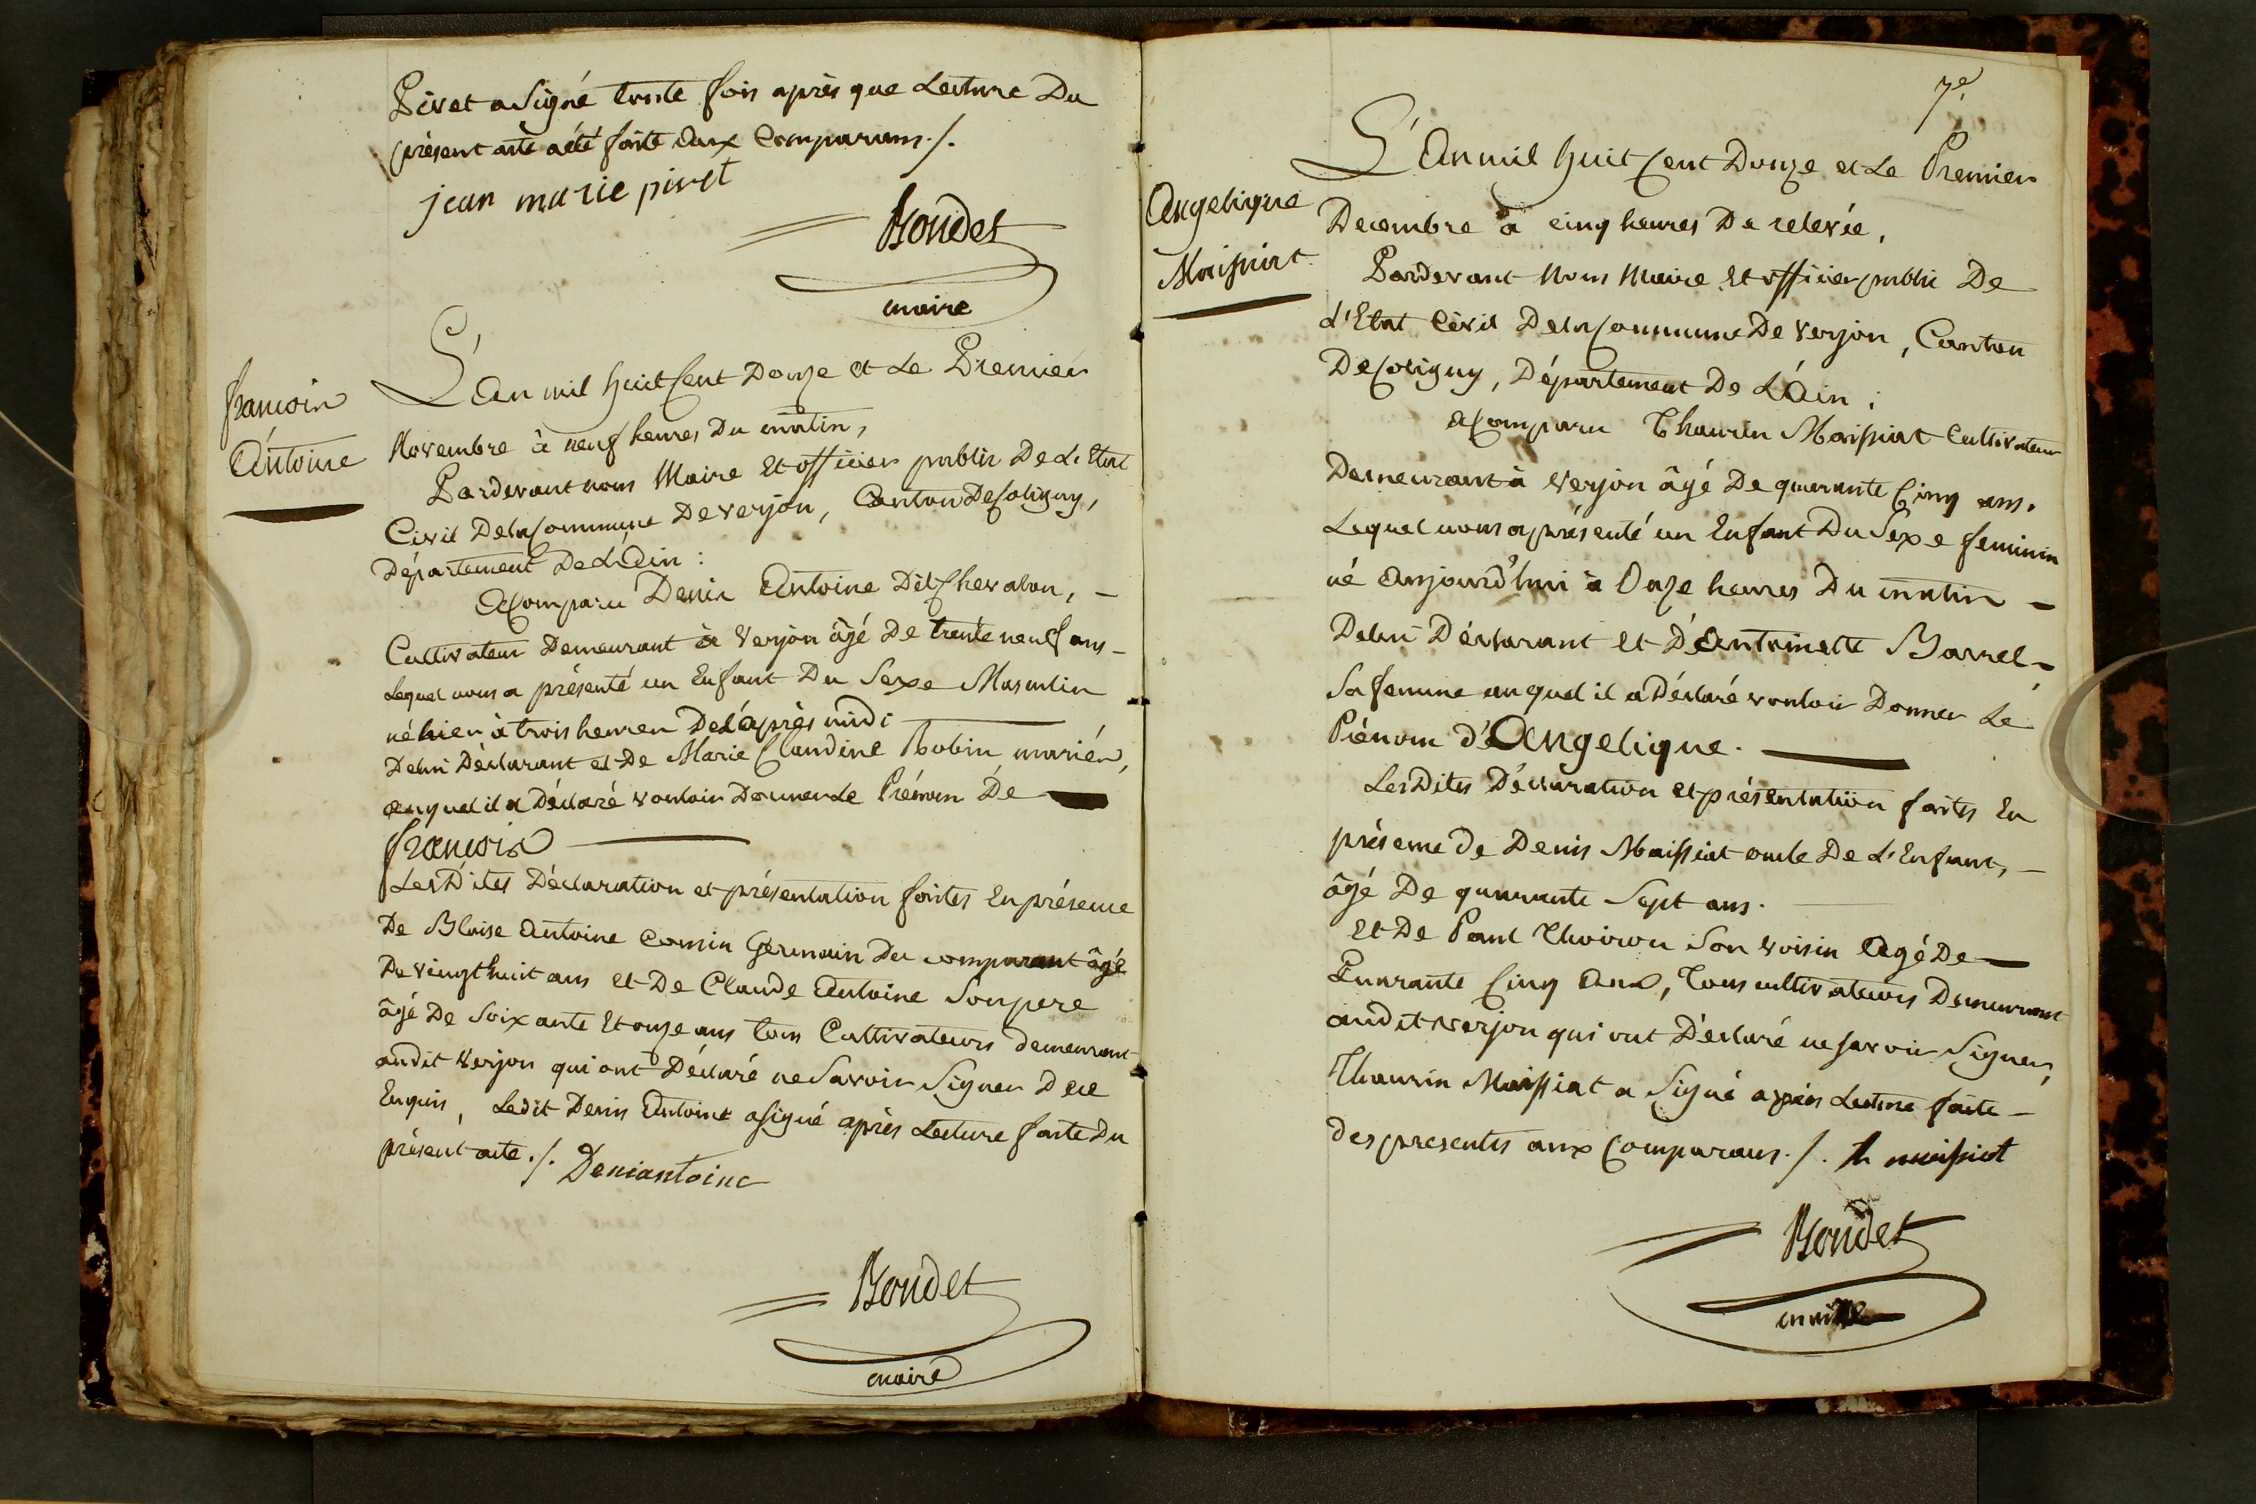 Pivet a Signé toute fois après que Lecture Du
présent acte a été faite aux Comparans ./.
jean marie pivet
Bondet
maire
francois
Antoine
L'An mil huit Cent Douze et Le Premier
Novembre à neuf heures Du matin,
Pardevant nous Maire Et officier public De L'Etat
Civil De la Commune De verjon, Canton De Coligny,
Département De L'Ain :
A Comparu Denis Antoine Dit Chevalon, -
Cultivateur Demeurant à Verjon âgé De trente neuf ans -
Lequel nous a présenté un Enfant Du Sexe Masculin
né hier à trois heures De L'après midi
De lui Déclarant et De Marie Claudine Robin mariés,
auquel il a Déclaré vouloir Donner Le Prénom De
francois
Les Dites Déclaration et présentation faites En présence
De Blaise Antoine Cousin Germain Du comparant âgé
De vingt huit ans et De Claude Antoine Son pere
âgé De Soixante Et onze ans tous Cultivateurs demeurant
audit Verjon qui ont Déclaré ne Savoir Signer De ce
Enquis, Ledit Denis Antoine a signé après Lecture faite Du
présent acte ./. Deniantoine
Bondet
maire
7e.
Angelique
Maissiat
L'An mil huit Cent Douze et Le Premier
Decembre à cinq heures De relevée,
Pardevant Nous Maire et officier public De
L'Etat Civil De la Commune De Verjon, Canton
De Coligny, Département De L'Ain ;
A Comparu Thaurin Maissiat Cultivateur
Demeurant à Verjon âgé De quarante Cinq ans.
Lequel nous a présenté un Enfant Du Sexe feminin
né Aujourd'hui à Onze heures Du matin -
De lui Déclarant et D'Antoinette Barrel -
Sa femme auquel il a Déclaré vouloir Donner Le
Prénom d'Angelique.
Les Dites Déclaration et présentation faites En
présence de Denis Maissiat oncle De L'Enfant, -
âgé De quarante Sept ans.
et De Paul Thoiron Son Voisin Agé De
Quarante Cinq Ans, tous cultivateurs Demeurant
audit verjon qui ont Déclaré ne savoir Signer,
Thaurin Maissiat a Signé après Lecture faite -
des presentes aux Comparans ./. th maissiat
Bondet
maire